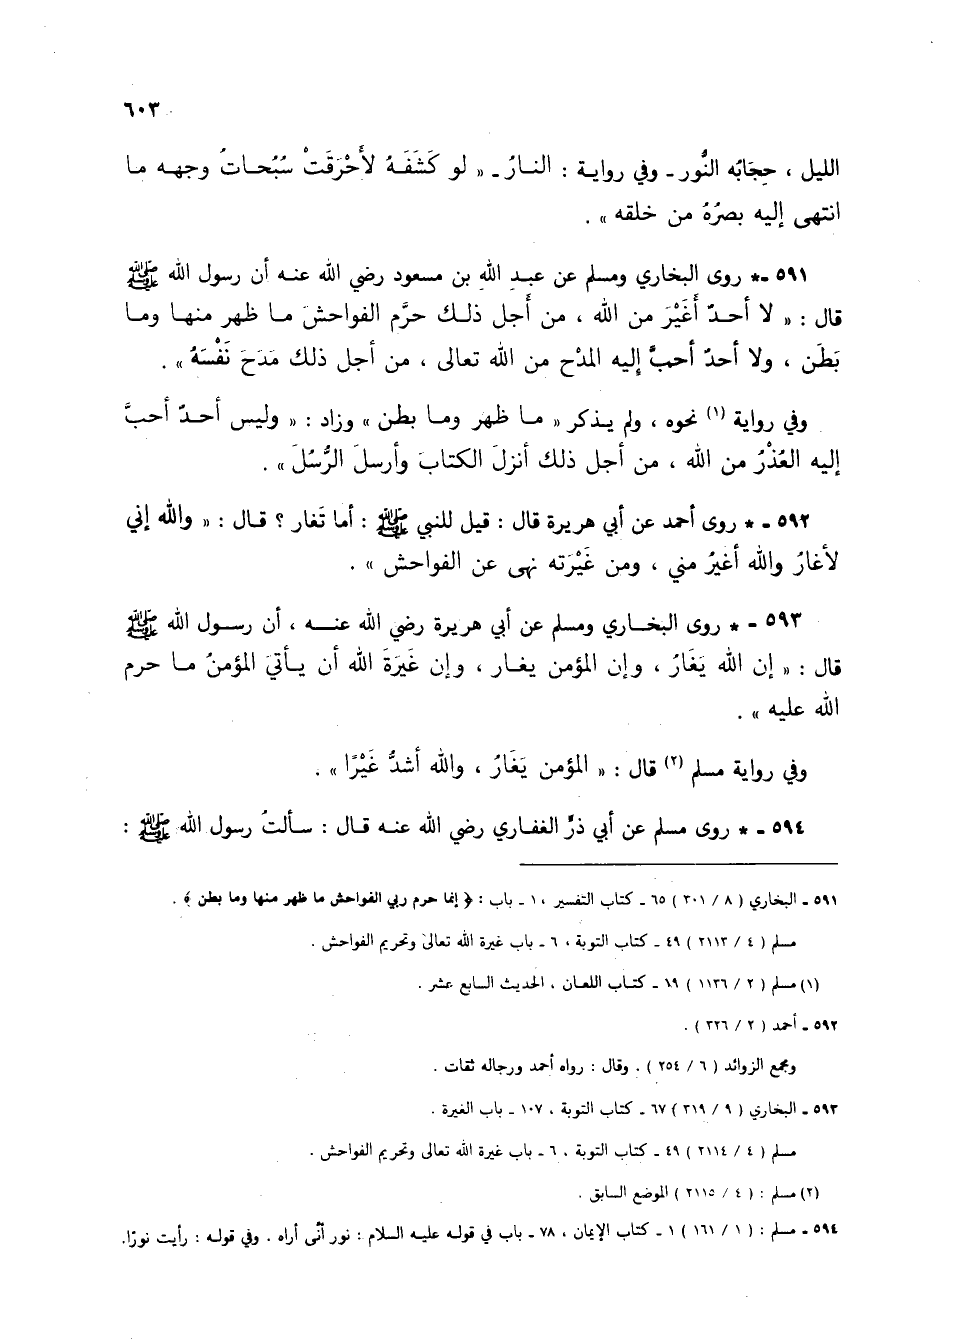 ٦٠٣
الليل ، حِجَابُه النُّور ـ وفي رواية : النارُ ـ « لو كَشَفَهُ لأَحْرَقَتْ سُبُحاتُ وجهه ما
انتهى إليه بصرُهُ من خلقه » .
٥٩١ ـ* روى البخاري ومسلم عن عبد الله بن مسعود رضي الله عنه أن رسول الله ﷺ
قال : « لا أحدٌ أَغْيَرَ من الله ، من أَجل ذلك حرَّم الفواحشَ ما ظهر منها وما
بَطَن ، ولا أحدٌ أحبَّ إليه المدْح من الله تعالى ، من أجل ذلك مَدَحَ نَفْسَهُ » .
وفي رواية (١) نحوه ، ولم يذكر « ما ظهر وما بطن » وزاد : « وليس أحدٌ أحبَّ
إليه العُذْرُ من الله ، من أجل ذلك أنزلَ الكتابَ وأرسلَ الرُّسُلَ » .
٥٩٢ ـ * روى أحمد عن أبي هريرة قال : قيل للنبي ﷺ : أما تَغار ؟ قال : « والله إني
لأغارُ والله أغيرُ مني ، ومن غَيْرَته نهى عن الفواحش » .
٥٩٣ ـ * روى البخاري ومسلم عن أبي هريرة رضي الله عنه ، أن رسول الله ﷺ
قال : « إن الله يَغَارُ ، وإن المؤمن يغار ، وإن غَيَرَةَ الله أن يأتيَ المؤمنُ ما حرم
الله عليه » .
وفي رواية مسلم (٢) قال : « المؤمن يَغَارُ ، والله أشدُّ غَيْرًا » .
٥٩٤ ـ * روى مسلم عن أبي ذرٍّ الغفاري رضي الله عنه قال : سألتُ رسول الله ﷺ :
٥٩١ ـ البخاري ( ٨ / ٣٠١ ) ٦٥ ـ كتاب التفسير ، ١ ـ باب : ﴿ إنما حرم ربي الفواحش ما ظهر منها وما بطن ﴾ .
مسلم ( ٤ / ٢١١٣ ) ٤٩ ـ كتاب التوبة ، ٦ ـ باب غيرة الله تعالى وتحريم الفواحش .
(١) مسلم ( ٢ / ١١٣٦ ) ١٩ ـ كتاب اللعان ، الحديث السابع عشر .
٥٩٢ ـ أحمد ( ٢ / ٣٢٦ ) .
ومجمع الزوائد ( ٦ / ٢٥٤ ) . وقال : رواه أحمد ورجاله ثقات .
٥٩٣ ـ البخاري ( ٩ / ٣١٩ ) ٦٧ ـ كتاب التوبة ، ١٠٧ ـ باب الغيرة .
مسلم ( ٤ / ٢١١٤ ) ٤٩ ـ كتاب التوبة ، ٦ ـ باب غيرة الله تعالى وتحريم الفواحش .
(٢) مسلم : ( ٤ / ٢١١٥ ) الموضع السابق .
٥٩٤ ـ مسلم : ( ١ / ١٦١ ) ١ ـ كتاب الإيمان ، ٧٨ ـ باب في قوله عليه السلام : نور أنَّى أراه . وفي قوله : رأيت نورًا.